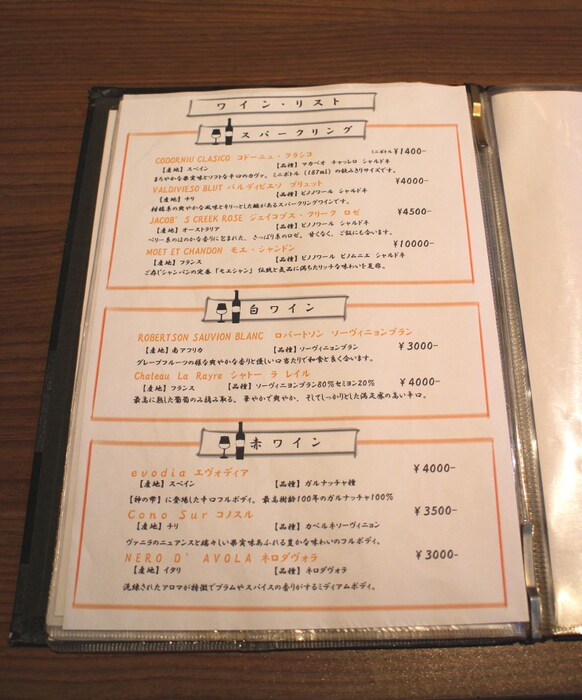 ワイン・リスト
スパークリング
CODORNIU CLASICO コドーニュ・クラシコ ミニボトル ¥1400-
【産地】スペイン 【品種】マカベオ チャッレロ シャルドネ
まろやかな果実味とソフトな辛口のカヴァ。ミニボトル (187ml) の飲みきりサイズです。
VALDIVIESO BLUT バルディビエソ ブリュット ¥4000-
【産地】チリ 【品種】ピノノワール シャルドネ
柑橘系の爽やかな風味とキリッとした酸があるスパークリングワインです。
JACOB'S CREEK ROSE ジェイコブス・クリーク ロゼ ¥4500-
【産地】オーストラリア 【品種】ピノノワール シャルドネ
ベリー系のほのかな香りに包まれた、さっぱり系のロゼ。甘くなく、ご飯にも合います。
MOET ET CHANDON モエ・シャンドン ¥10000-
【産地】フランス 【品種】ピノノワール ピノムニエ シャルドネ
ご存じシャンパンの定番「モエシャン」伝統と気品に満ちたリッチな味わいを是非。
白ワイン
ROBERTSON SAUVION BLANC ロバートソン ソーヴィニョンブラン
【産地】南アフリカ 【品種】ソーヴィニョンブラン ¥3000-
グレープフルーツの様な爽やかな香りと優しい口当たりで和食と良く合います。
Chateau La Rayre シャトー ラ レイル
【産地】フランス 【品種】ソーヴィニョンブラン80%セミヨン20% ¥4000-
最高に熟した葡萄のみ摘み取る。華やかで爽やか、そしてしっかりとした満足感の高い辛口。
赤ワイン
evodia エヴォディア ¥4000-
【産地】スペイン 【品種】ガルナッチャ種
【神の雫】に登場した辛口フルボディ。最高樹齢100年のガルナッチャ100%
Cono Sur コノスル ¥3500-
【産地】チリ 【品種】カベルネソーヴィニョン
ヴァニラのニュアンスと瑞々しい果実味あふれる豊かな味わいのフルボディ。
NERO D'AVOLA ネロダヴォラ ¥3000-
【産地】イタリ 【品種】ネロダヴォラ
洗練されたアロマが特徴でプラムやスパイスの香りがするミディアムボディ。